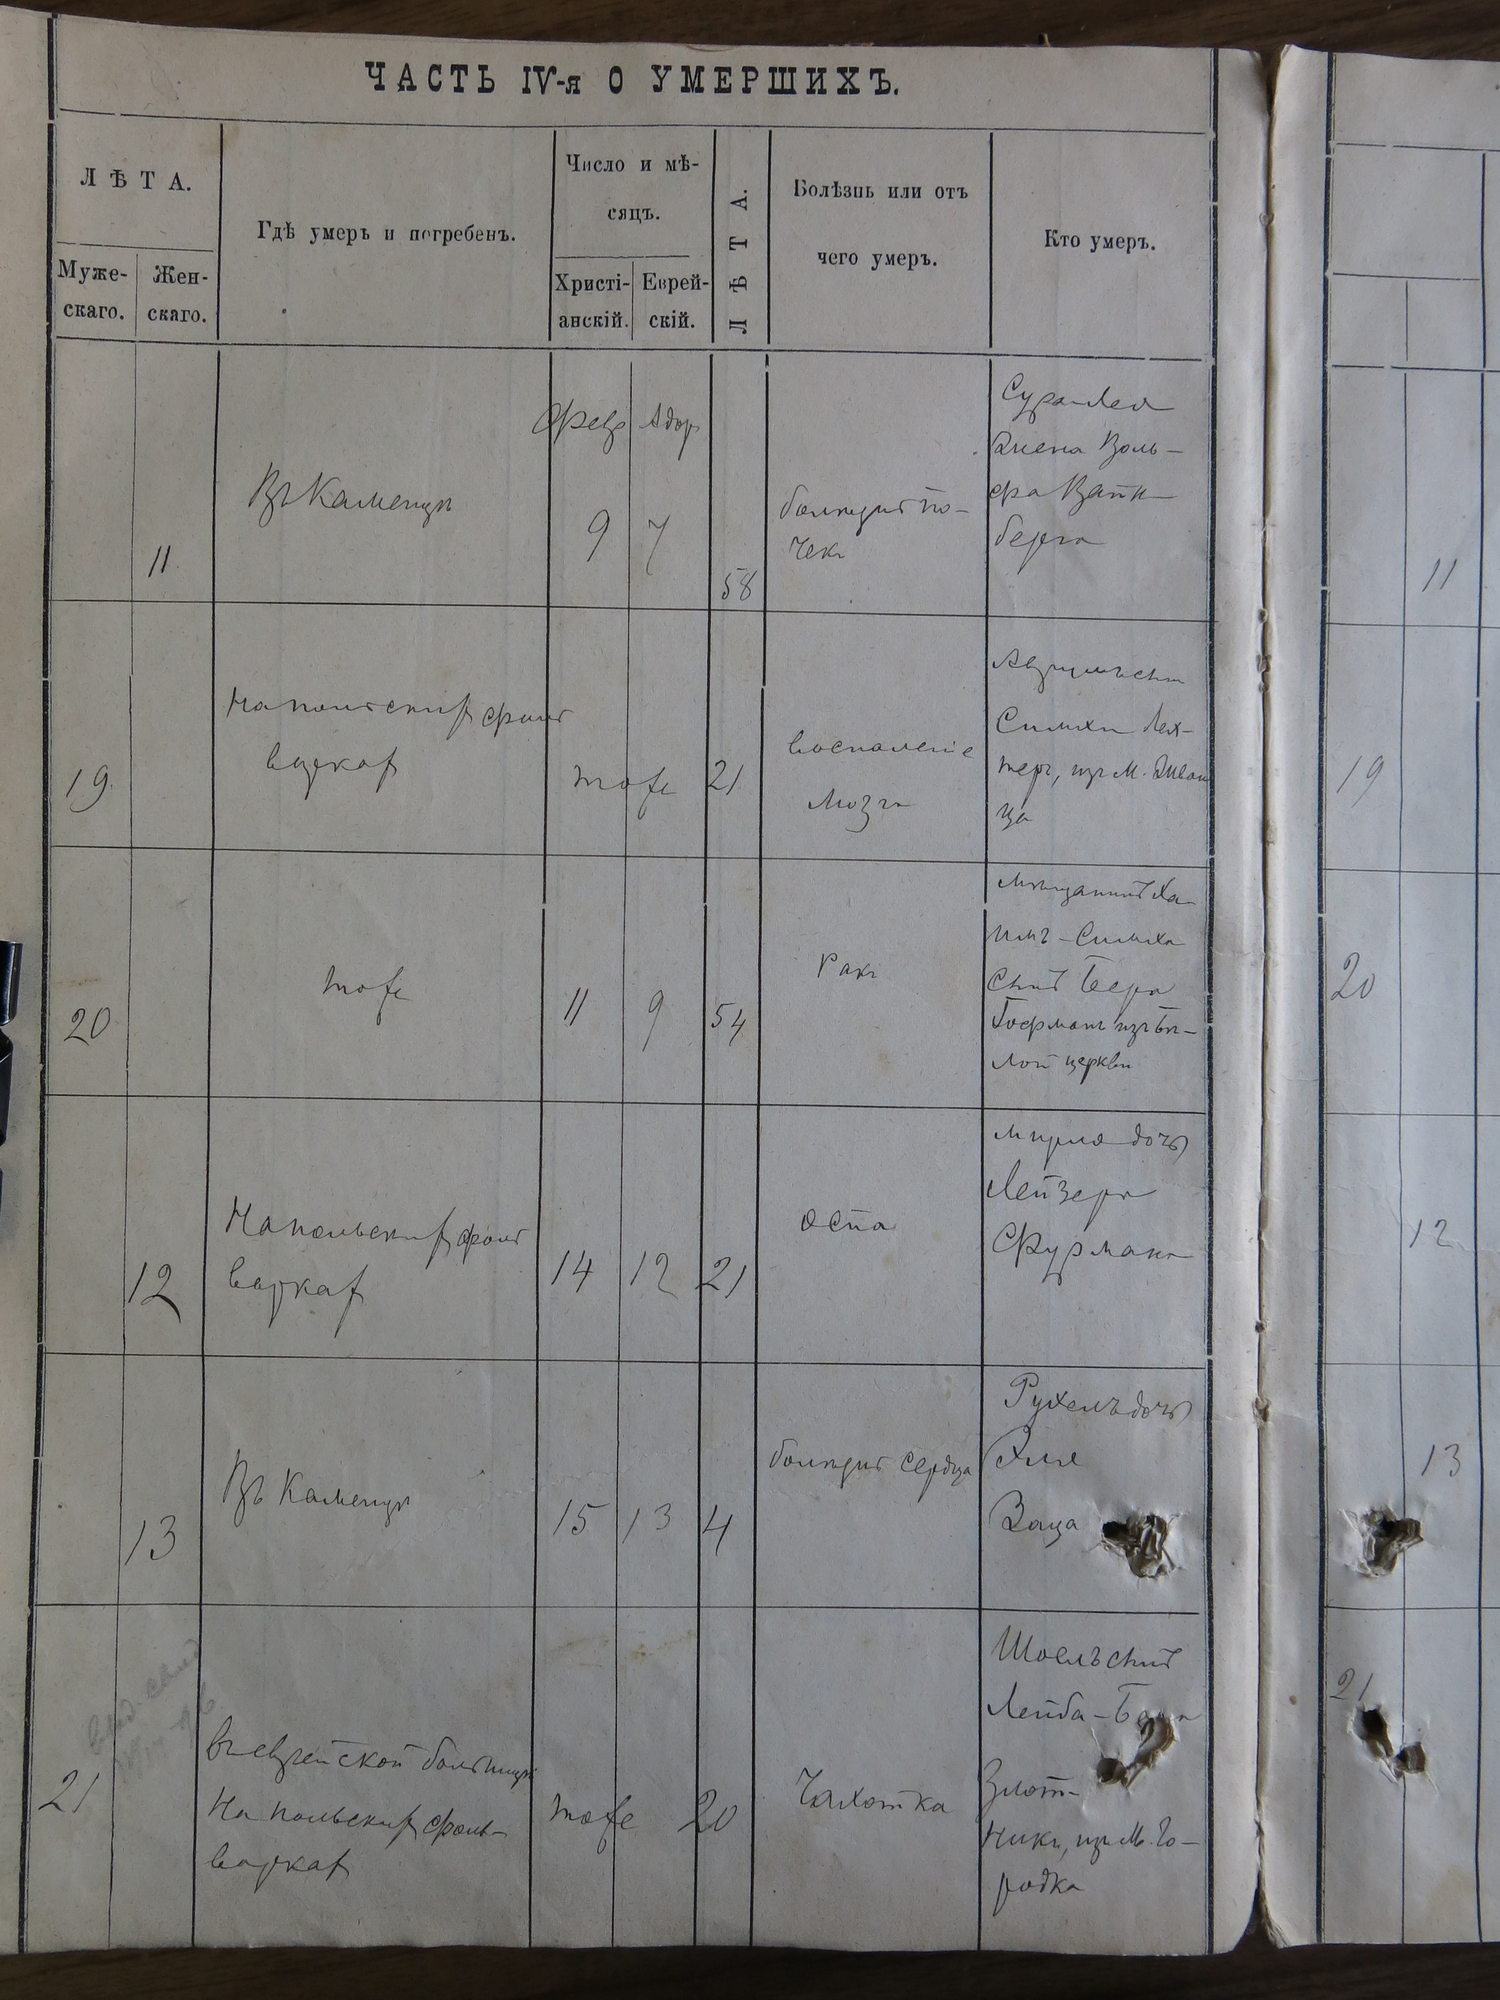 ЧАСТЬ IV-я О УМЕРШИХЪ.
ЛѢТА.
Муже-
скаго.
Жен-
скаго.
Гдѣ умеръ и погребенъ.
Число и мѣ-
сяцъ.
Христі-
анскій.
Еврей-
скій.
ЛѢТА.
Болѣзнь или отъ
чего умеръ.
Кто умеръ.
11
Въ Каменцѣ
Февр
Адор
9
7
58
болѣзнь по-
чекъ
Сура Лея
жена Воль-
фа Вайн-
берга
11
19
На польскихъ фоль
варкахъ
тоже
21
воспаленіе
мозга
Аврумъ сынъ
Симхи Лех-
теръ, изъ м. Жван
ца
19
20
тоже
11
9
54
Ракъ
мѣщанинъ Ха-
имъ-Симха
сынъ Бера
Гофманъ изъ Бѣ-
лой церкви
20
12
На польскихъ фоль
варкахъ
14
12
21
оспа
Мирля дочь
Лейзера
Фурмана
12
13
Въ Каменцѣ
15
13
4
болѣзнь сердца
Рухель дочь
Эля
Ваца
13
21
въ еврейской больницѣ
На польскихъ фоль-
варкахъ
тоже
20
Чахотка
Шоель сынъ
Лейба-
Злот-
никъ, изъ м. Го-
родка
21